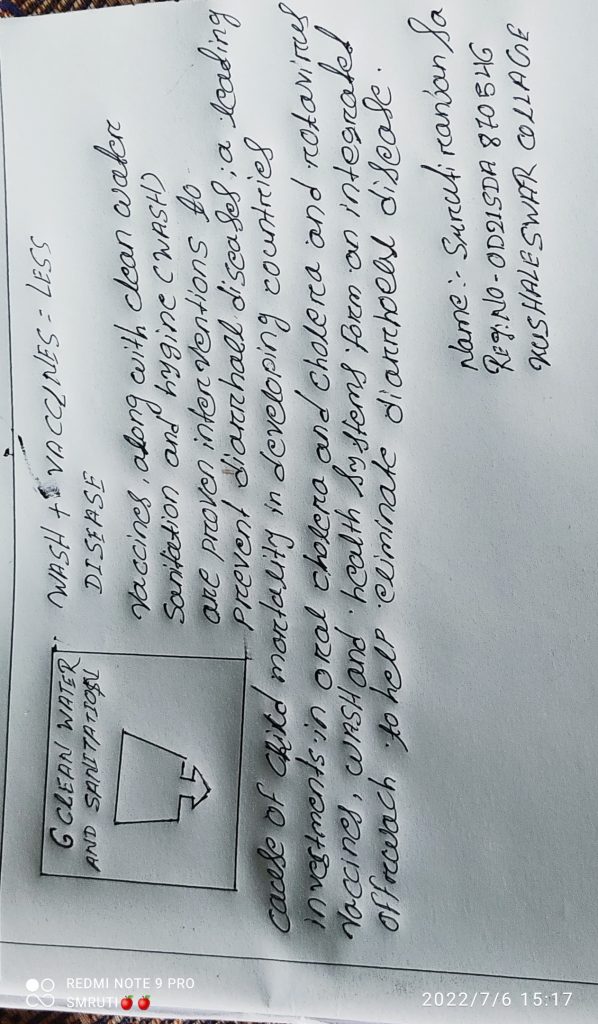 6 CLEAN WATER
AND SANITATION
WASH + VACCINES = LESS
DISEASE
Vaccines, along with clean water
Sanitation and hygine (WASH)
are proven interventions to
prevent diarrhoeal diseases; a leading
cause of child mortality in developing countries
investments in oral cholera and cholera and rotavirus
vaccines, WASH and health systems form an integrated
to help eliminate diarrhoeal disease.
Name:- Smruti ranjan Sa
Reg.No-OD21SDA 870546
KUSHALESWAR COLLAGE
REDMI NOTE 9 PRO
SMRUTI🍎🍎
2022/7/6 15:17